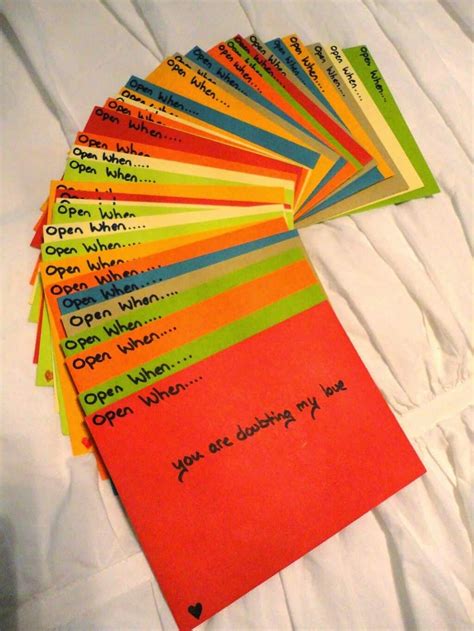 Open When....
Open When....
Open When....
Open When....
Open When....
Open When....
Open When....
Open When....
Open When....
Open When....
Open When....
Open When....
Open When....
Open When....
Open When....
Open When....
Open When....
Open When....
Open When....
Open When....
Open When....
Open When....
Open When....
Open When....
you are doubting my love